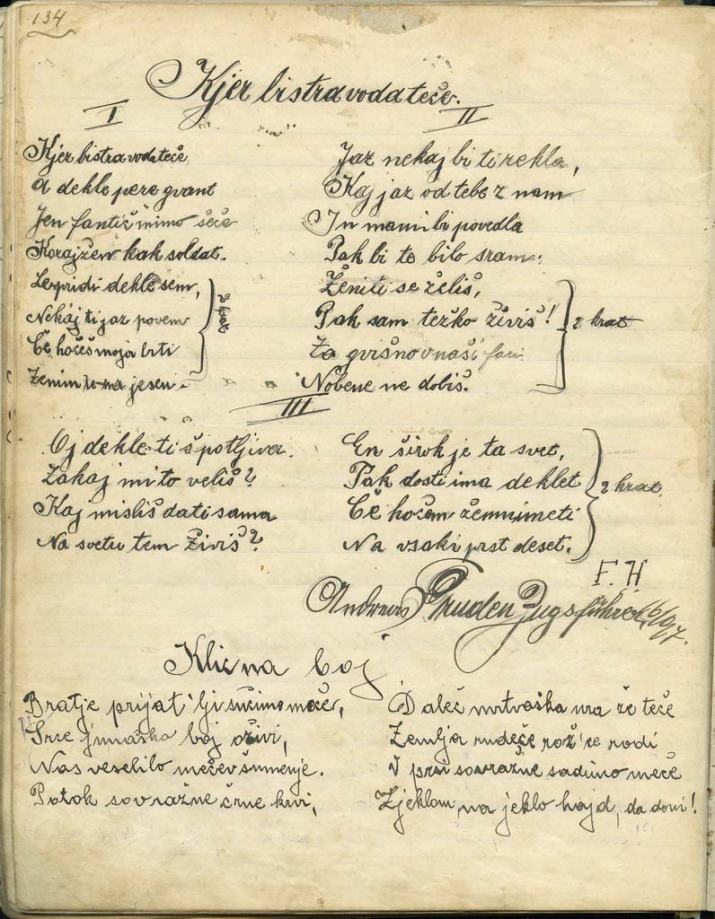 134
Kjer bistra voda teče.
I
Kjer bistra voda teče
a dekle pere gvant
Jen fantič mimo šeče
Korajžen kak soldat.
Le pridi dekle sem,
Nekaj ti jaz povem
Če hočeš moja biti
Ženim te na jesen.
2 krat
II
Jaz nekaj bi ti rekla,
Kaj jaz od tebe znam
In mami bi povedla
Pak bi te bilo sram.
Ženiti se želiš,
Pak sam težko živiš!
Za gvišno v naši fari
Nobene ne dobiš.
2 krat
III
Oj dekle ti špotljiva.
Zakaj mi to veliš?
Kaj misliš dati sama
Na svetu tem živiš?
En širok je ta svet,
Pak dosti ima deklet
Če hočem ženni meti
Na vsaki prst deset.
2 krat
F. H.
Andreas Pruden Zugsführer
Klic na boj
Bratje prijat'lji sučimo meče,
Srce junaška boj oživi,
Nas veselilo mečev šumenje.
Potok sovražne črne krvi,
Daleč mrtvaška ura že teče
Zemlja rudeče rož'ce rodi
V prsi sovražne sadimo meče
Z jeklom na jeklo hajd, da doni!